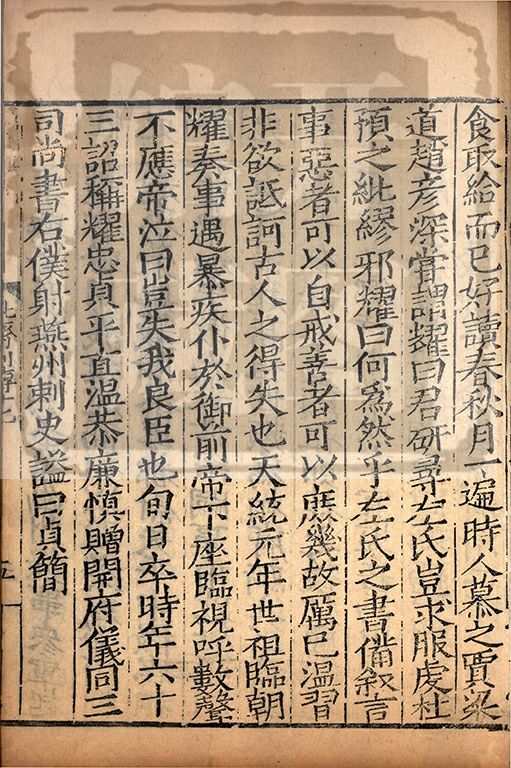 食取給而已好讀春秋月一遍時人慕之賈梁
道趙彦深嘗謂耀曰君研尋左氏豈求服虔杜
預之紕繆邪耀曰何爲然乎左氏之書備叙言
事惡者可以自戒善者可以庶幾故厲已温習
非欲詆訶古人之得失也天統元年世祖臨朝
耀奏事遇暴疾仆於御前帝下座臨視呼數聲
不應帝泣曰豈失我良臣也旬日卒時年六十
三詔稱耀忠貞平直温恭廉慎贈開府儀同三
司尚書右僕射燕州刺史謚曰貞簡